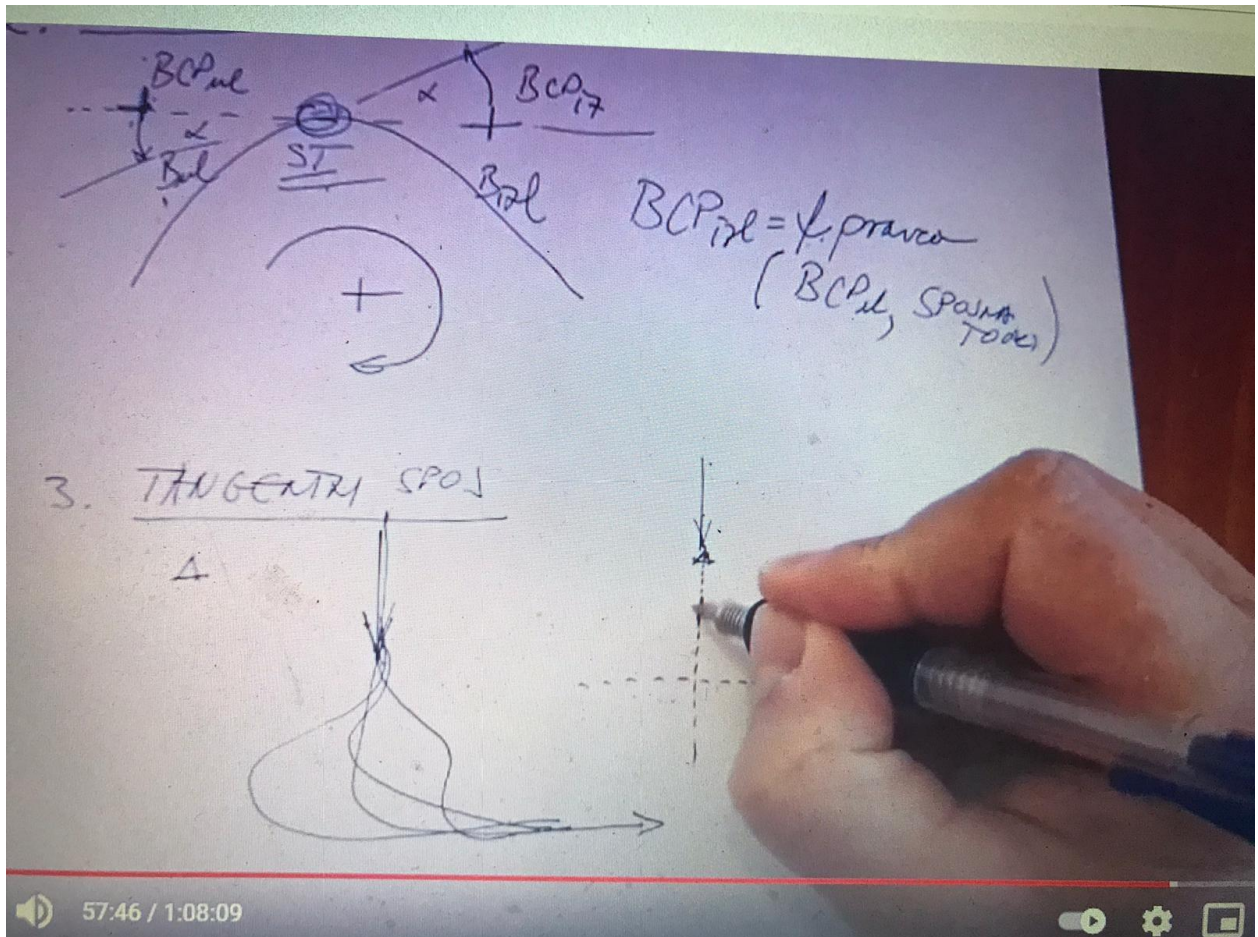 BCPul
α
Bul
ST
α
BCPiz
Bizl
BCPizl = f. pravca
(BCPul, SPOJNA
TOČKA)
3. TANGENTNI SPOJ
Δ
57:46 / 1:08:09